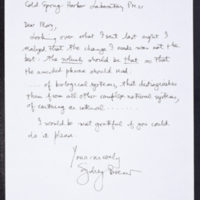 Cold Spring Harbor Laboratory Press
Dear Mary,
Looking over what I sent last night I
realized that the change I made was not the
best. The should be that so that
the amended phrase should read
.... of biological systems, that distinguishes
them from all other complex natural systems,
of as natural ......
I would be most grateful if you could
do it please.
Yours sincerely
Sydney Brenner